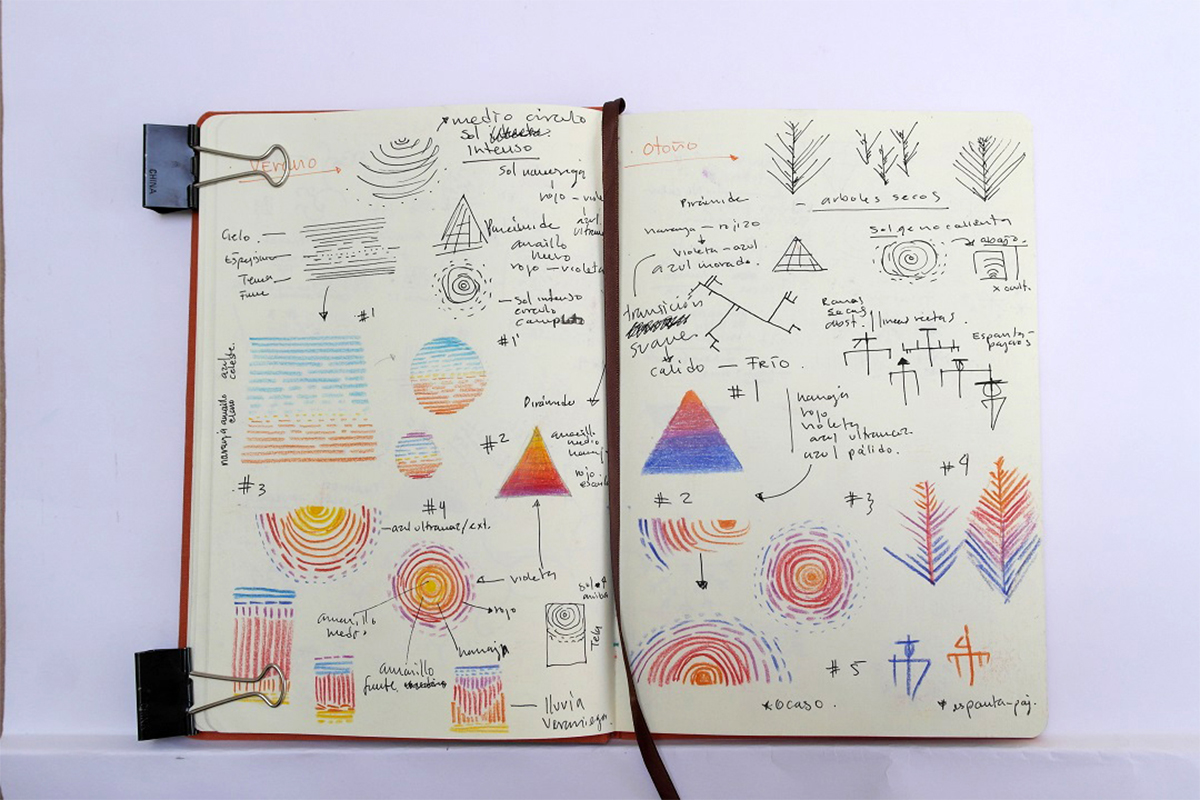 CHINA
Verano
medio circulo
Sol
Intenso
Sol naranja
rojo – viole
azul
ultramar
Cielo.
Tierra
Pirámide
amarillo
rojo – violeta
Sol intenso
circulo
#1
#1'
azul
celeste.
naranja
Pirámide
#2
amarillo
medio
naranja
rojo
#3
#4
azul ultramar/ext.
violeta
rojo
amarillo
medio.
naranja
amarillo
fuerte.
sol
arriba
Tela
lluvia
Veraniega.
Otoño
Pirámide
– arboles secos
naranja – rojizo
violeta – azul
azul morado.
Sol que no calienta
abajo.
x ocult.
transición
suave
Ramas
secas
lineas rectas.
Espanta-
pajaros
cálido – FRÍO.
#1
naranja
rojo
violeta
azul ultramar
azul pálido.
#2
#3
#4
#5
*Ocaso.
* espanta-paj.